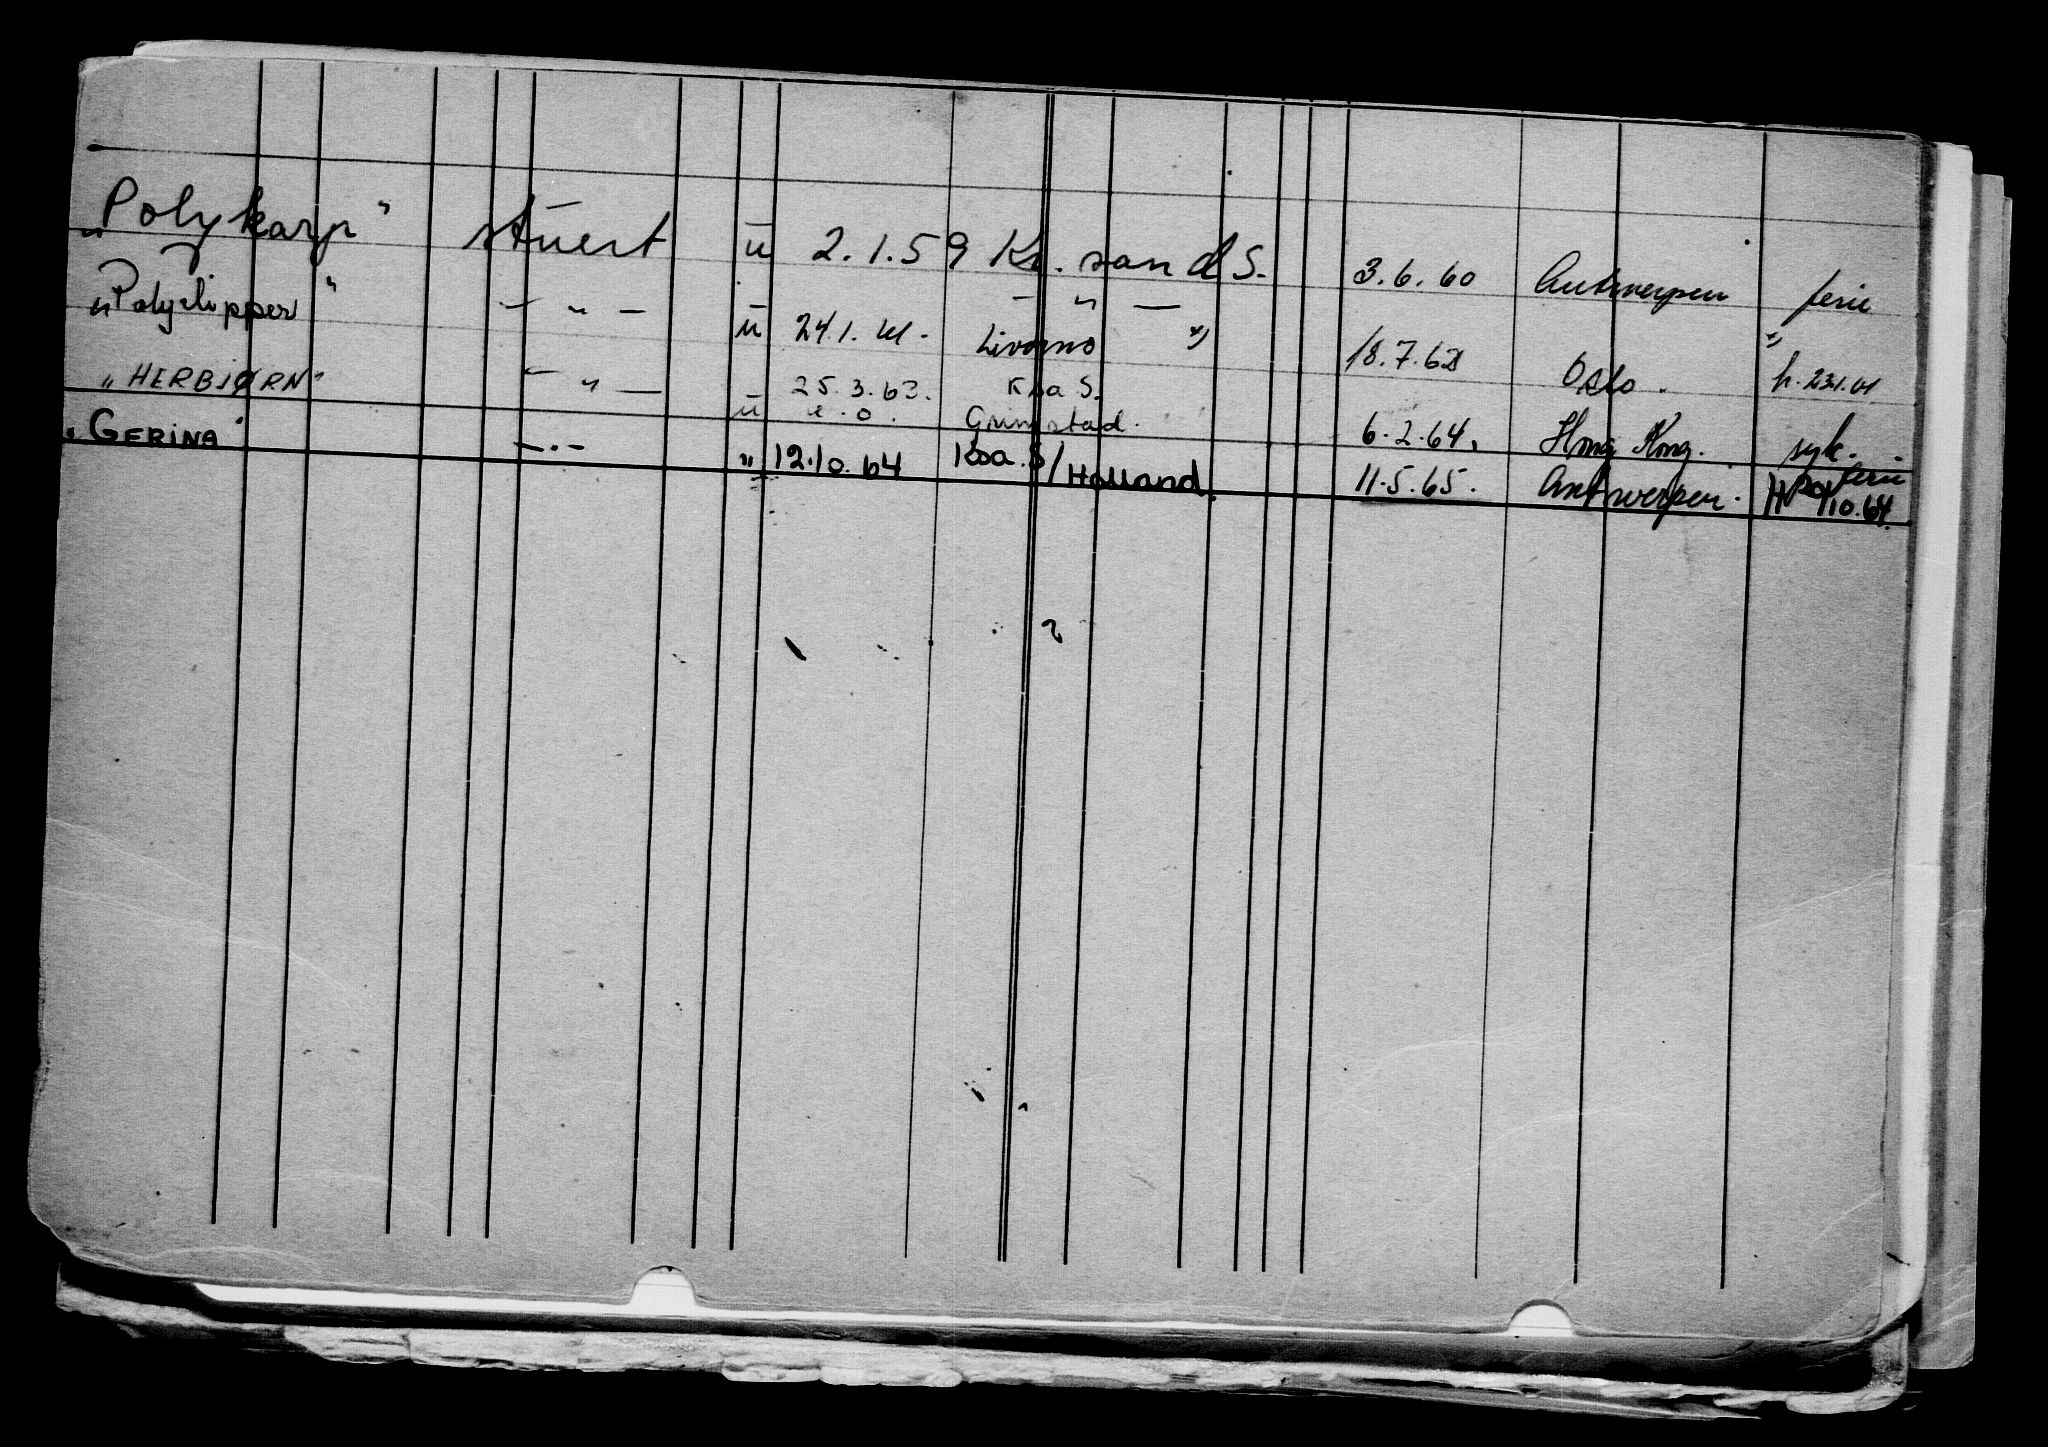 „Polykarp" stuert ū 2.1.59 Kr. sand S. 3.6.60 Antwerpen ferie
„Polyclipper" — " — ū 24.1.61. Livorno 18.7.62 Oslo. h. 23.1.61
„HERBJØRN" — " — ū 25.3.63. Ksa S. Grimstad. 6.2.64. Hong Kong. syk.
„GERINA" —.— " 12.10.64 Ksa. S/Holland. 11.5.65. Antwerpen. ferie 10.64.